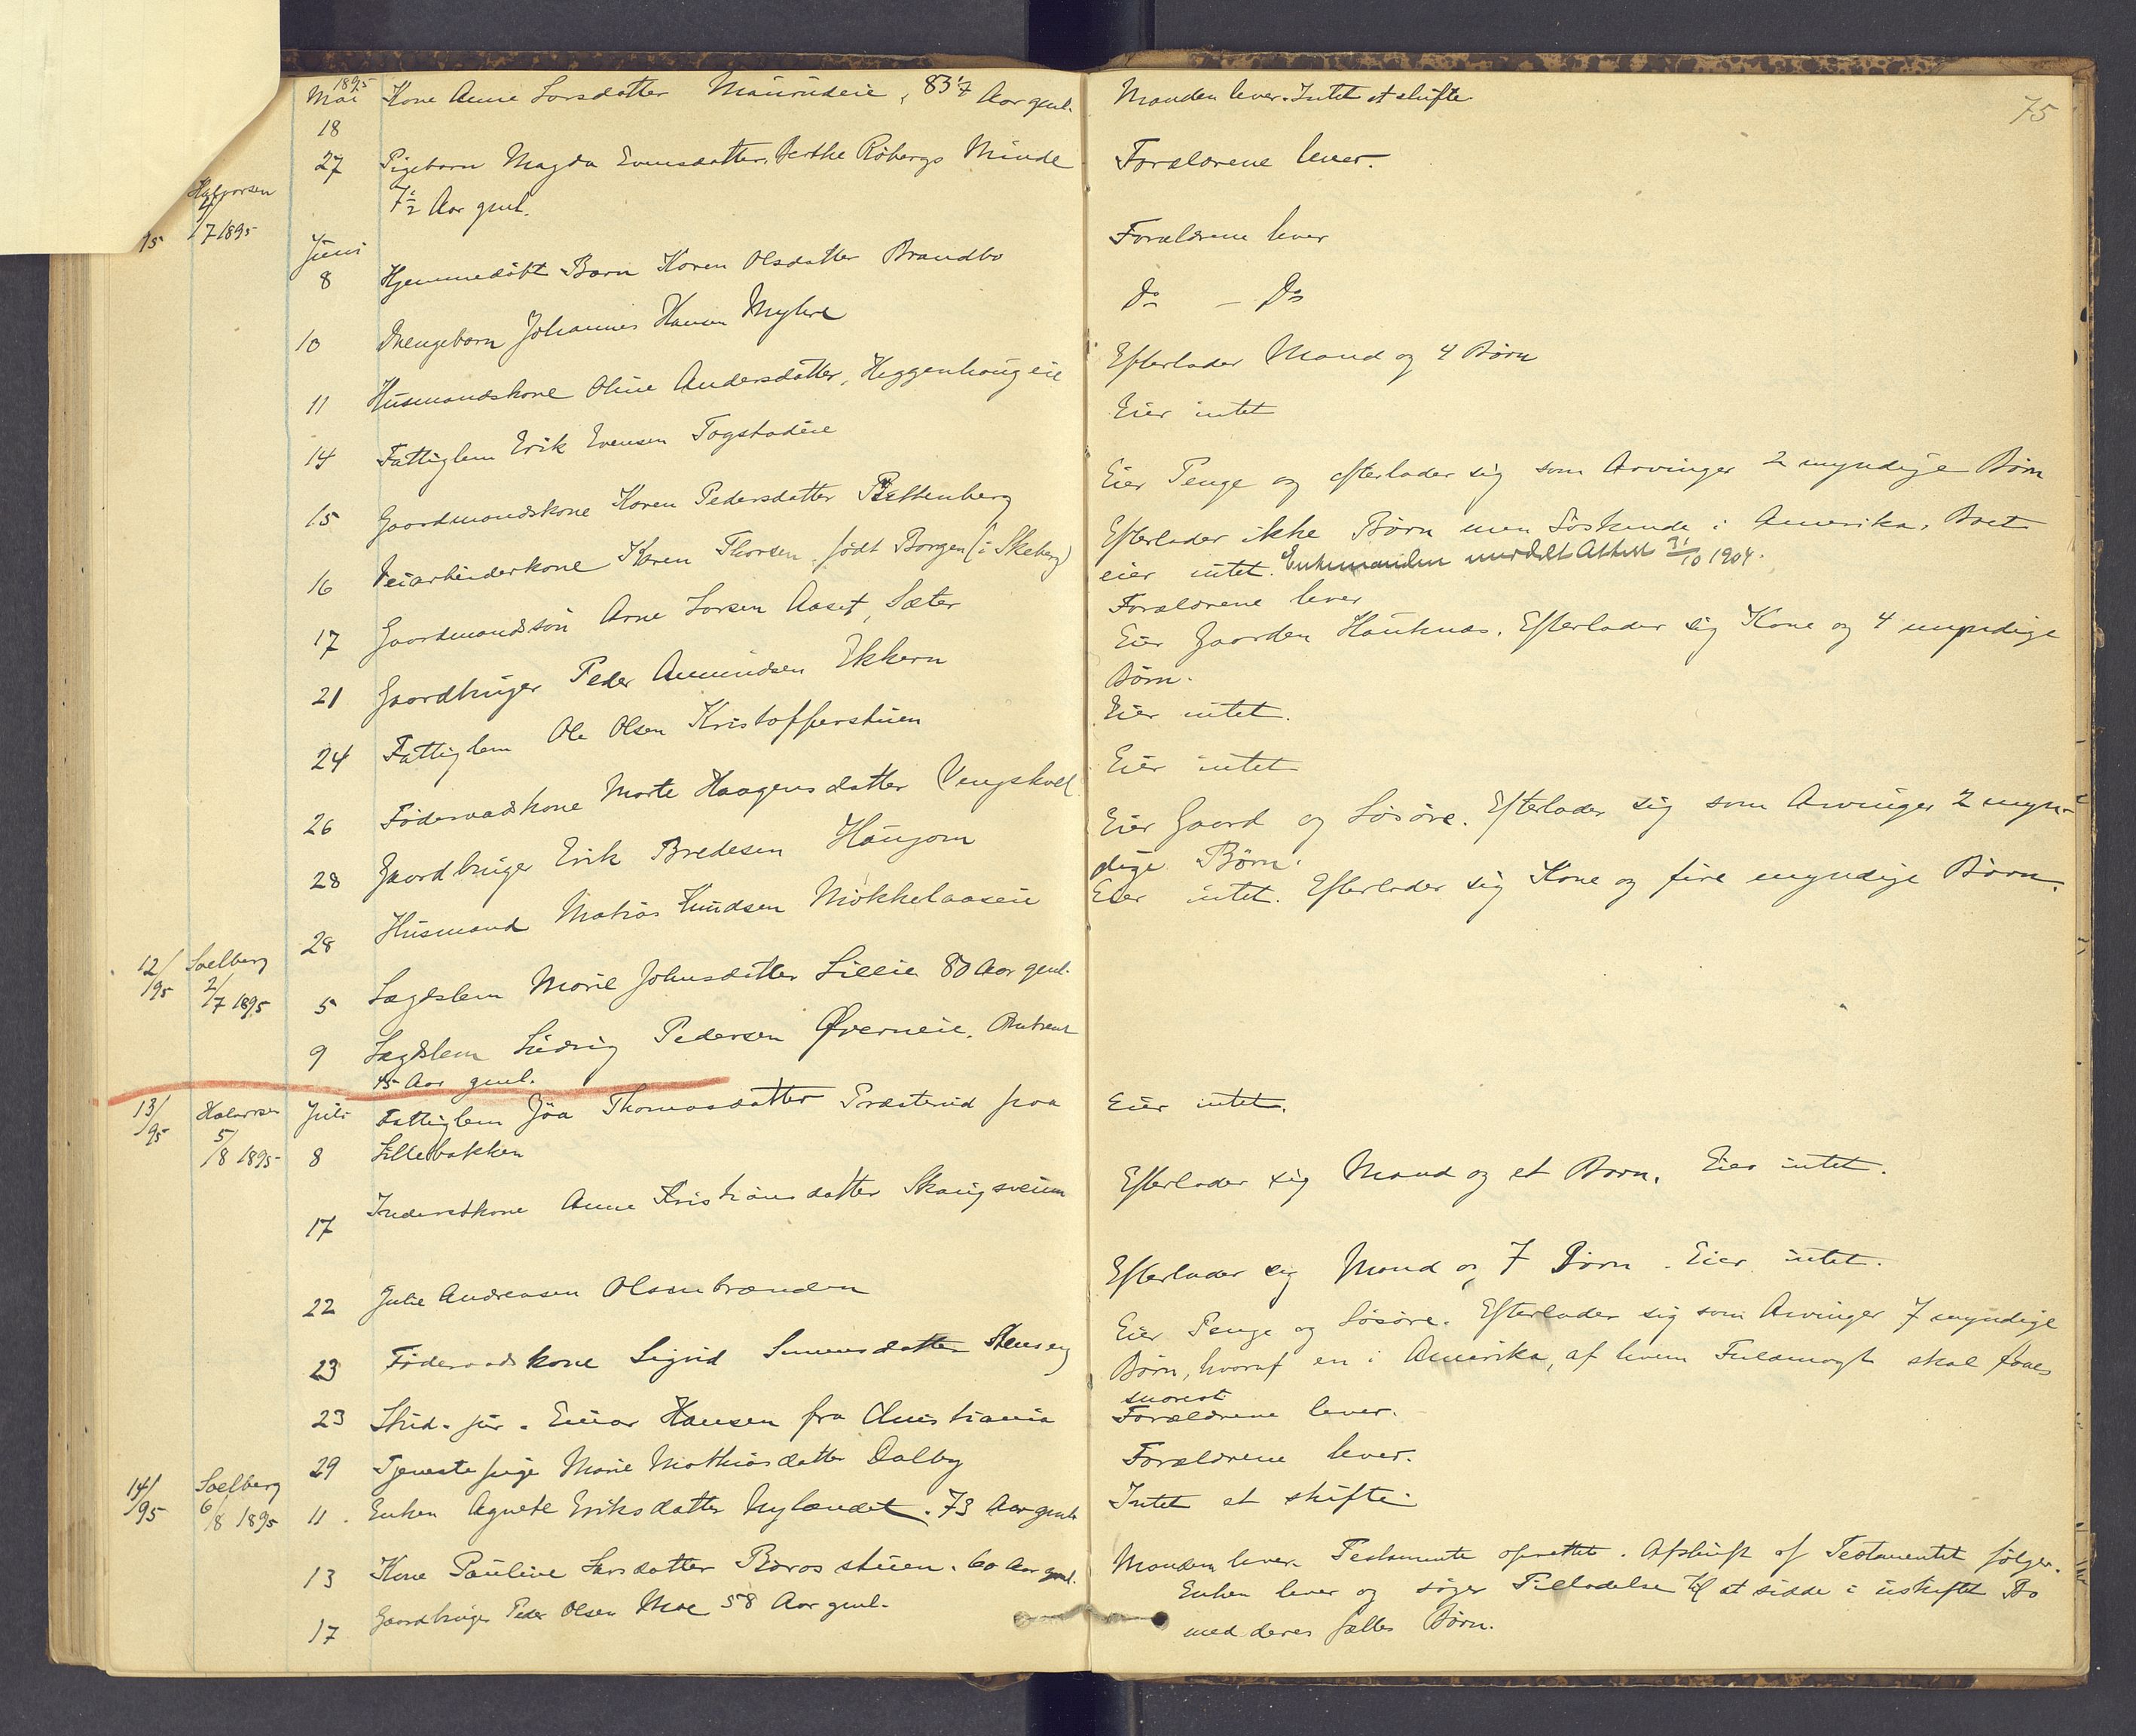 75
1895
Mai Kone Anne Larsdatter Maurudeie, 83 7 Aar gml. Manden lever. Intet at skifte.
18
27 Pigebarn Magda Evensdatter, Røbergs Minde Forældrene lever.
7 1/2 Aar gml.
Halvorsen
4/7 1895
95
Juni
8 Hjemmedøbt Barn Karen Olsdatter Brandbo Forældrene lever
10 Drengebarn Johannes Hansen Myhre Do — Do
11 Husmandskone Oline Andersdatter, Heggenhaugeie Efterlader Mand og 4 Børn
14 Fattiglem Erik Evensen Togstadeie Eier intet
15 Gaardmandskone Karen Pedersdatter Eier Penge og efterlader sig som Arvinger 2 myndige Børn
16 Veiarbeiderkone Karen Thorsen født Borgen (i Skeberg) Efterlader ikke Børn men Søskende i Amerika. Boet
eier intet. Enkemanden meddelt Attest 31/10 1904.
17 Gaardmandssøn Arne Larsen Aaset, Sæter Forældrene lever
21 Gaardbruger Peder Amundsen Ekkern Eier Gaarden Hauknæs. Efterlader sig Kone og 4 myndige
Børn.
24 Fattiglem Ole Olsen Kristofferstuen Eier intet.
26 Føderaadskone Marte Haagensdatter Vengskvel Eier intet
28 Gaardbruger Erik Bredesen Haugom Eier Gaard og Løsøre. Efterlader sig som Arvinger 2 myn-
dige Børn.
28 Husmand Matias Knudsen Mokkelaaseie Eier intet. Efterlader sig Kone og fire myndige Børn.
12/95 Soelberg
2/7 1895 5 Lægdslem Marie Johnsdatter Lillie 80 Aar gml.
9 Lægdslem Ludvig Pedersen Øverneie, Omtrent
45 Aar gml.
13/95 Halvorsen Juli Fattiglem Jøa Thomasdatter Præsterud paa Eier intet.
5/8 1895 8 Lillebakken
17 Inderstkone Anne Kristiansdatter Skaugsveum Efterlader sig Mand og et Barn. Eier intet.
22 Julie Andreasen Olsenbrænden Efterlader sig Mand og 7 Børn. Eier intet.
23 Føderaadskone Sigrid Simensdatter Stenseng Eier Penge og Løsøre. Efterlader sig som Arvinger 7 myndige
Børn, hvoraf en i Amerika, af hvem Fuldmagt skal faaes
snarest.
23 Stud. jur. Einar Hansen fra Christiania Forældrene lever.
29 Tjenestepige Marie Mathiasdatter Dalby Forældrene lever.
14/95 Soelberg
6/8 1895 11. Enken Agnete Eriksdatter Nylændet. 73 Aar gml. Intet at skifte
13 Kone Pauline Larsdatter Rørosstuen. 60 Aar gml. Manden lever. Testamente oprettet. Afskrift af Testamentet følger.
17 Gaardbruger Peder Olsen Moe 58 Aar gml. Enken lever og søger Tilladelse til at sidde i uskiftet Bo
med deres fælles Børn.